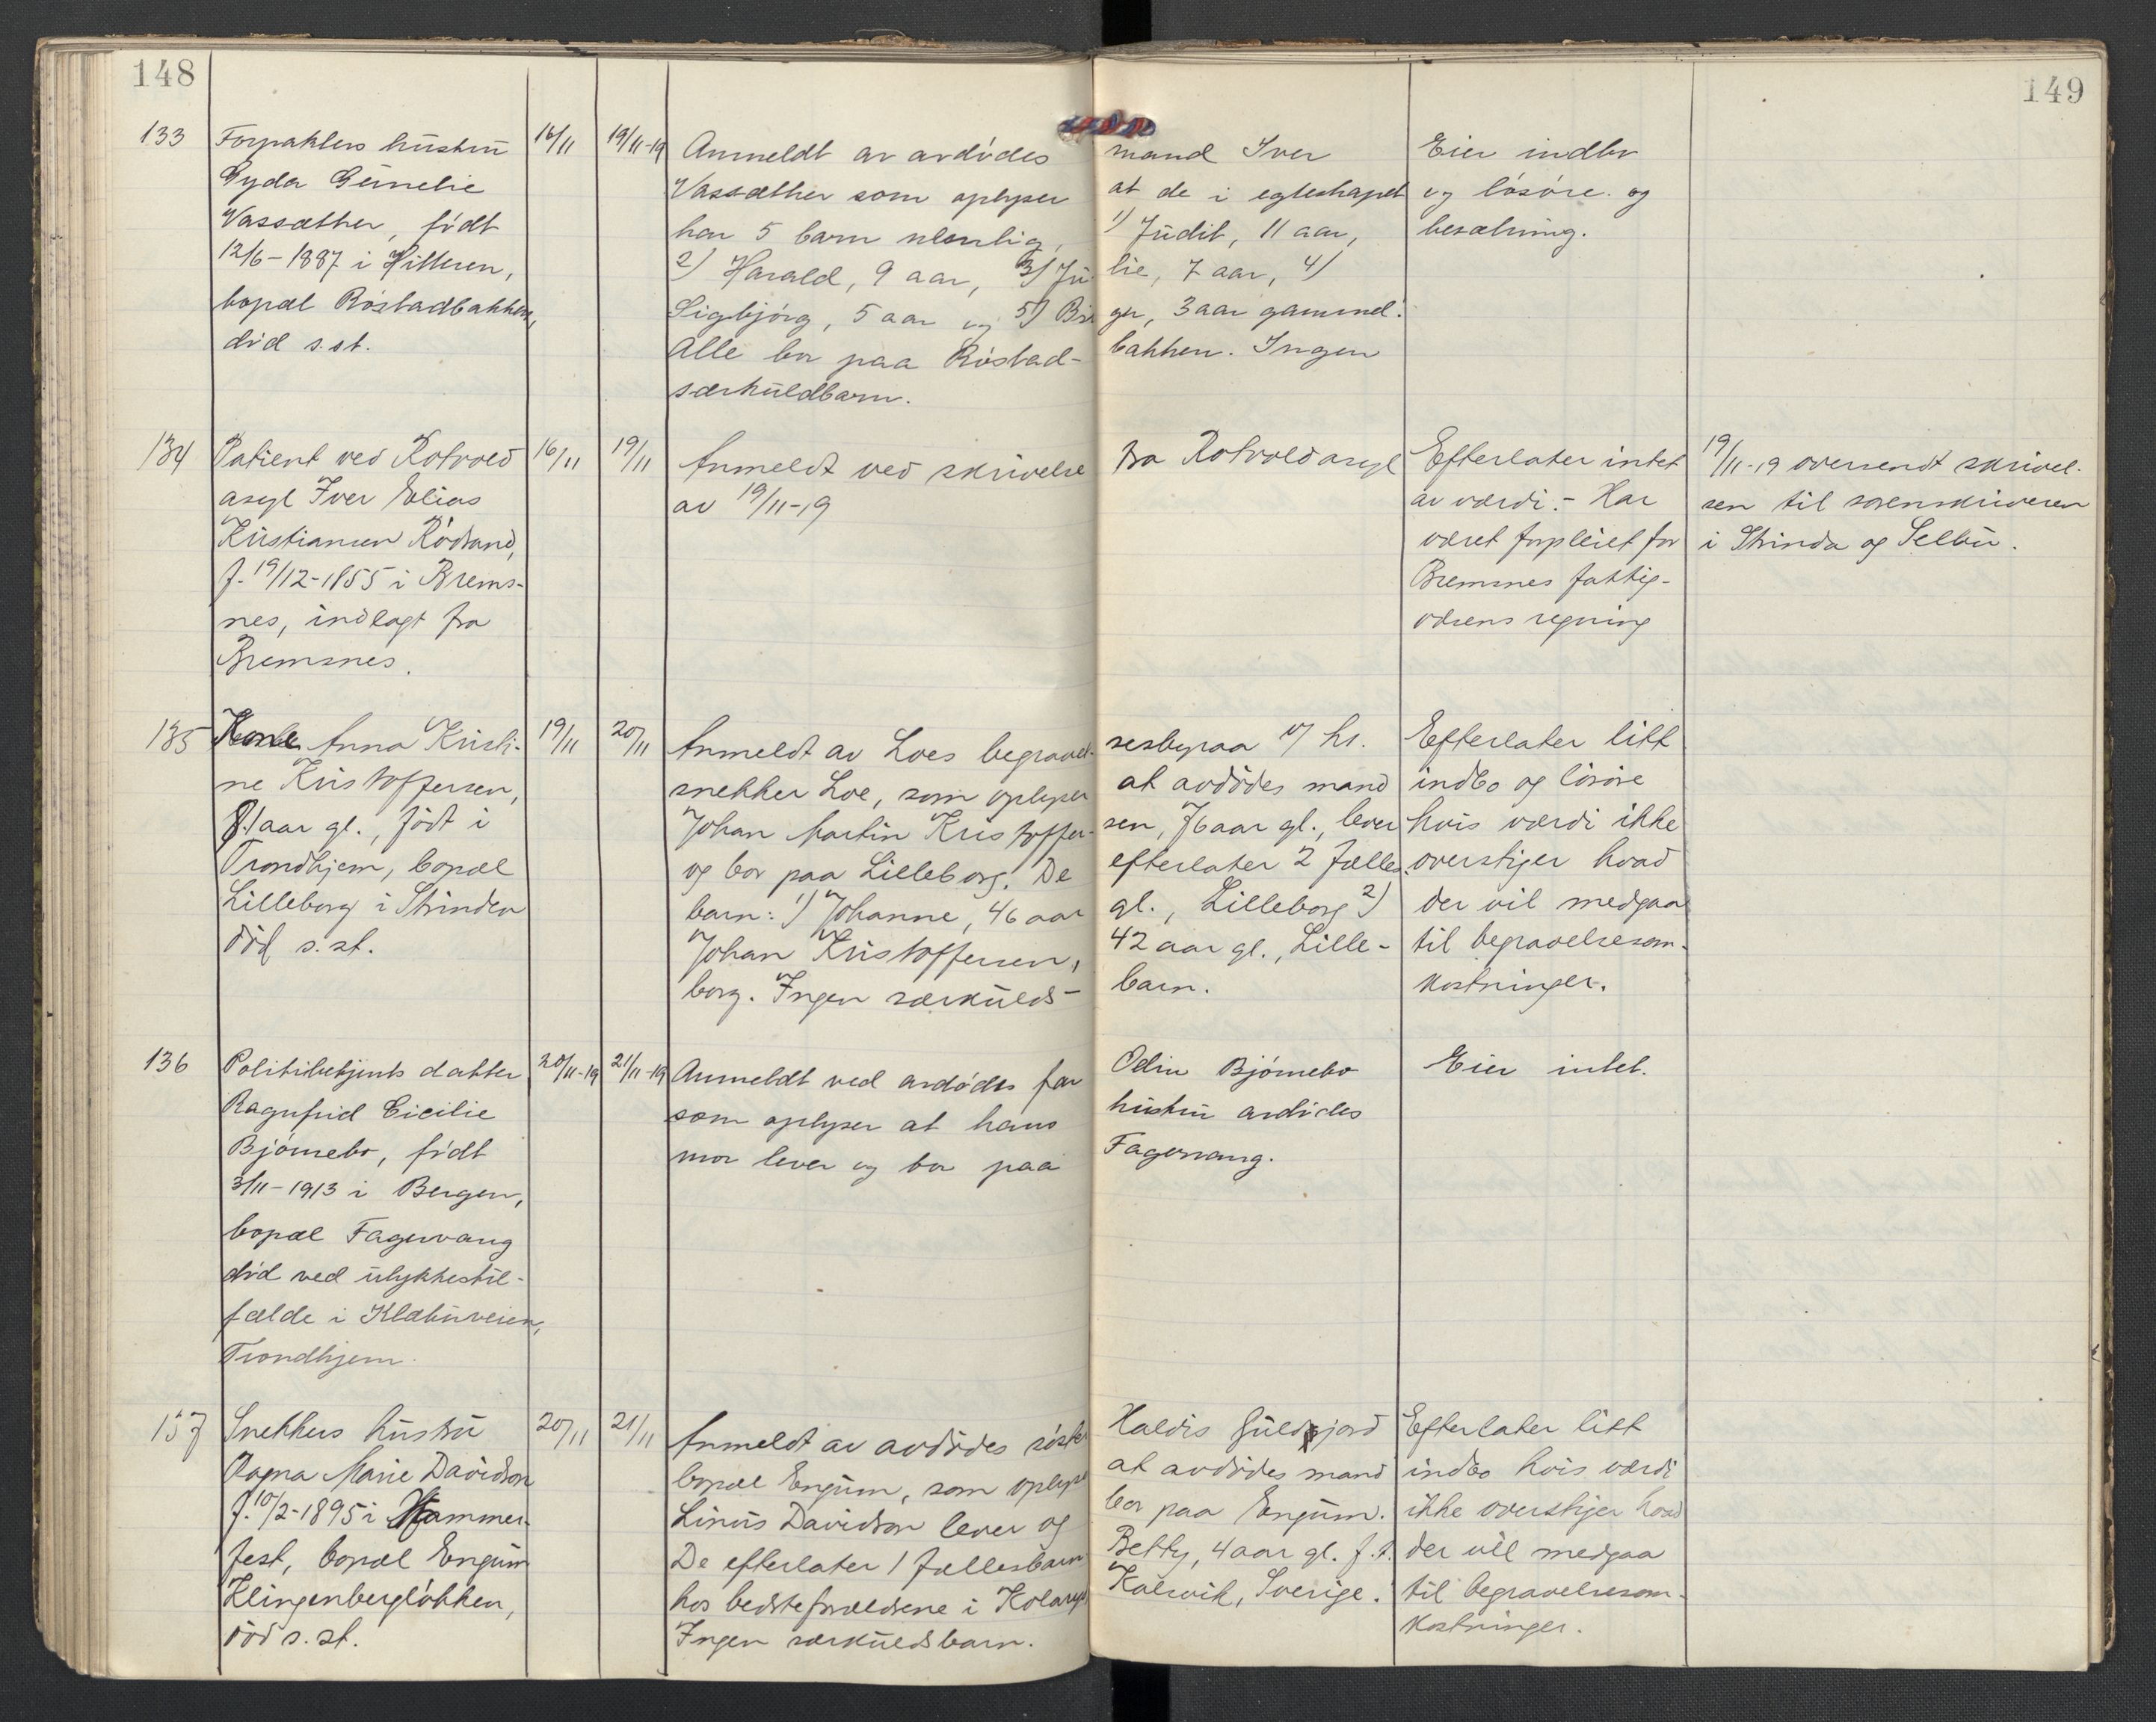 148
149
133
Forpakters hustru
Gyda Gunelie
Vassæther, født
12/6-1887 i Hitteren,
bopæl Röstadbakken,
död s.st.
16/11
19/11-19
Anmeldt av avdödes mand Iver
Vassæther som oplyser at de i egteskapet
har 5 barn nemlig, 1) Judit, 11 aar,
2) Harald, 9 aar, 3) Julie, 7 aar, 4)
Sigbjörg, 5 aar og 5) Birger, 3 aar gammel.
Alle bor paa Röstadbakken. Ingen
særkuldbarn.
Eier indbo
og lösöre og
besætning.
134
Patient ved Rotvold
asyl Iver Elias
Kristiansen Rödsand,
f. 19/12-1855 i Brems-
nes, indlagt fra
Bremsnes.
16/11
19/11
Anmeldt ved skrivelse fra Rotvold asyl
av 19/11-19
Efterlater intet
av værdi. - Har
været forpleiet for
Bremsnes fattig-
væsens regning
19/11-19 oversendt skrivel-
sen til sorenskriveren
i Strinda og Selbu.
135
Kone Anna Kristi-
ne Kristoffersen,
81 aar gl., födt i
Trondhjem, bopæl
Lilleborg i Strinden
död s.st.
19/11
20/11
Anmeldt av Loes begravelsesbyraa v/ hr.
snekker Loe, som oplyser at avdödes mand
Johan Martin Kristoffersen, 76 aar gl., lever
og bor paa Lilleborg. De efterlater 2 fælles
barn: 1) Johanne, 46 aar gl., Lilleborg 2)
Johan Kristoffersen, 42 aar gl., Lille-
borg. Ingen særkulds- barn.
Efterlater litt
indbo og lösöre
hvis værdi ikke
overstiger hvad
der vil medgaa
til begravelsesom-
kostninger.
136
Politibetjents datter
Ragnfrid Cicilie
Bjørnebo, født
3/11-1913 i Bergen,
bopæl Fagervang
död ved ulykkestil-
fælde i Klæbuveien,
Trondhjem.
20/11-19
21/11-19
Anmeldt ved avdödes far Odin Bjørnebo
som oplyser at hans hustru avdödes
mor lever og bor paa Fagervang.
Eier intet.
137
Snekkers hustru
Dagna Marie Davidson
f. 10/2-1895 i Hammer-
fest, bopæl Engum
Klingenberglökken,
död s.st.
20/11
21/11
Anmeldt av avdödes söster Haldis Guldgjord
bopæl Engum, som oplyser at avdödes mand
Linus Davidson lever og bor paa Engum.
De efterlater 1 fællesbarn Betty, 4 aar gl. f.t.
hos bedsteforældrene i Kolarvik, Sverige.
Ingen særkuldsbarn.
Efterlater litt
indbo hvis værdi
ikke overstiger hvad
der vil medgaa
til begravelsesom-
kostninger.